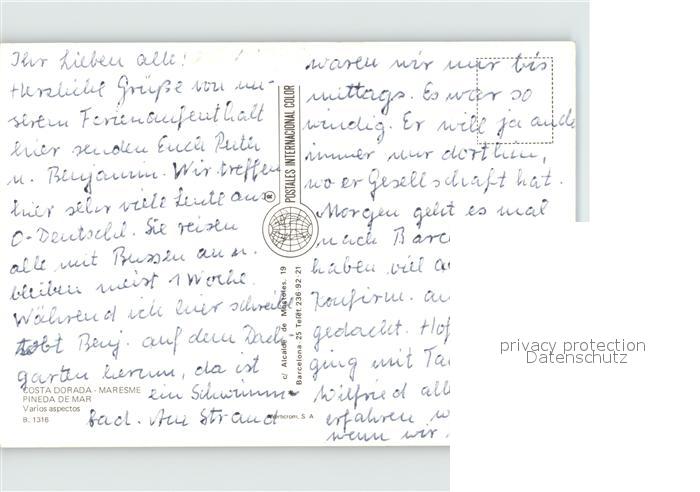 Ihr Lieben alle!
Herzliche Grüße von un-
serem Ferienaufenthalt
hier senden Euch Ruth
u. Benjamin. Wir treffen
hier sehr viele Leute aus
O-Deutschl. Sie reisen
alle mit Bussen an u.
bleiben meist 1 Woche.
Während ich hier schreibe
tobt Benj. auf dem Dach-
garten herum, da ist
ein Schwimm-
bad. Am Strand
waren wir nur bis
mittags. Es war so
windig. Er will ja auch
immer nur dorthin,
wo er Gesellschaft hat.
Morgen geht es mal
nach Barc
haben viel a
Konfirm. au
gedacht. Hof
ging mit Ta
Wilfried all
erfahren w
wenn wir
COSTA DORADA - MARESME
PINEDA DE MAR
Varios aspectos
B. 1316
POSTALES INTERNACIONAL COLOR
®
c/ Alcalde de Móstoles, 19
Barcelona - 25 Teléf. 236 92 21
S. A.
privacy protection
Datenschutz